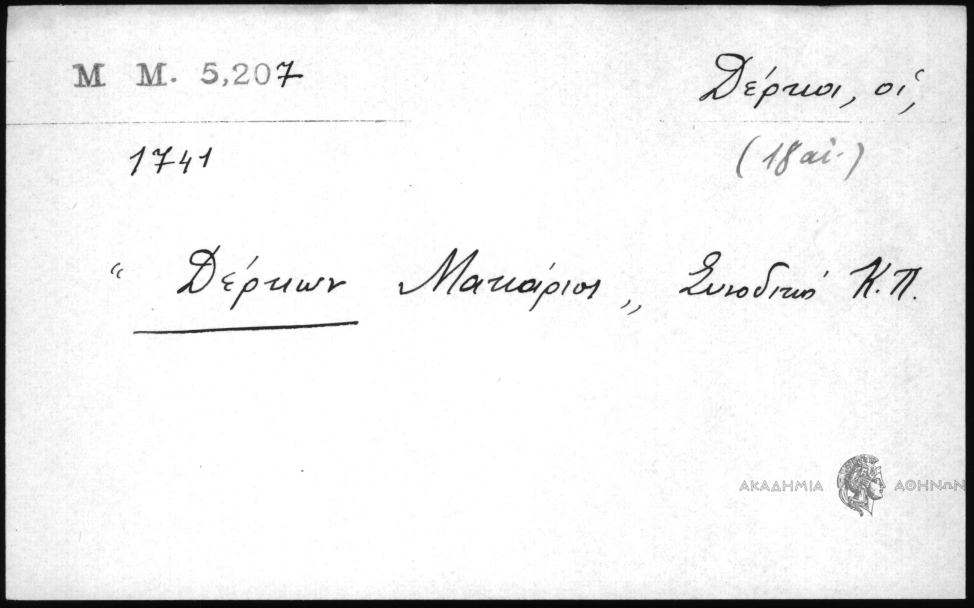 M M. 5,207
Δέρκοι, οἱ,
1741
(18 αἰ.)
“ Δέρκων Μακάριος „ Συνοδικό Κ.Π.
ΑΚΑΔΗΜΙΑ ΑΘΗΝΩΝ